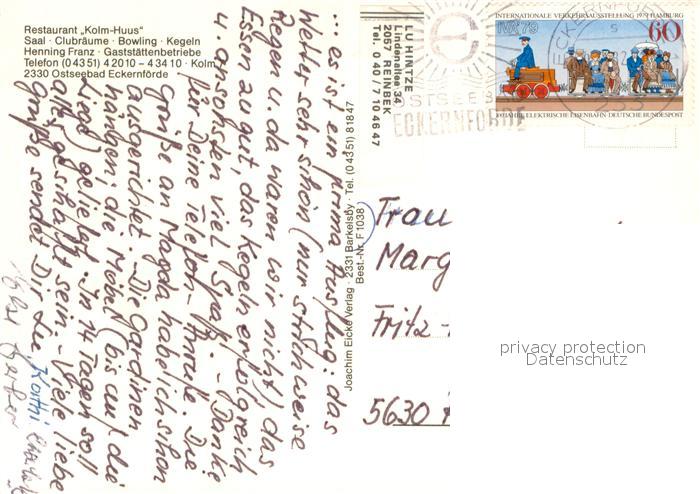 Restaurant „Kolm-Huus"
Saal · Clubräume · Bowling · Kegeln
Henning Franz · Gaststättenbetriebe
Telefon (0 43 51) 4 20 10 – 4 34 10 · Kolm
2330 Ostseebad Eckernförde
... es ist ein prima Ausflug: das
Wetter sehr schön (nur strichweise
Regen u. da waren wir nicht) das
Essen zu gut, das Kegeln erfolgreich
u. ansonsten viel Spaß. – Danke
für Deine Telefon-Anrufe. Die
Grüße an Magda habe ich schon
ausgerichtet. – Die Gardinen
hängen; die Möbel (bis auf die
) geliefert. In 14 Tagen soll
alles geschafft sein. – Viele liebe
Grüße sendet Dir die
Joachim Eicke Verlag · 2331 Barkelsby · Tel. (0 43 51) 8 18 47
Best.-Nr. F 1038
LU HINTZE
Lindenallee 34
2057 REINBEK
Tel. 0 40 / 7 10 46 47
OSTSEEBAD
ECKERNFÖRDE
INTERNATIONALE VERKEHRSAUSSTELLUNG 1979 HAMBURG
IVA 79
60
100 JAHRE ELEKTRISCHE EISENBAHN · DEUTSCHE BUNDESPOST
ECKERNFÖRDE
Frau
Marg
Fritz-
5630
privacy protection
Datenschutz